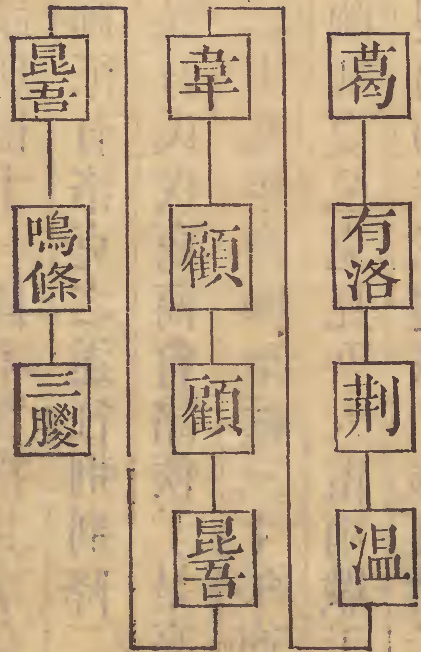 葛
有洛
荆
温
韋
顧
顧
昆吾
昆吾
鳴條
三朡